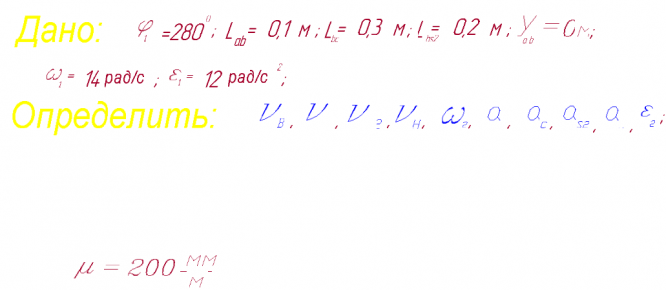 Дано: φ₁ =280⁰; Lab= 0,1 м; Lbc= 0,3 м; l bs2= 0,2 м; Yab =0м;
ω₁= 14 рад/с ; ε₁= 12 рад/с ²;
Определить: νB, ν , ν 2, νH, ω₂, a , ac, as2, a , ε₂;
μ = 200 мм/м